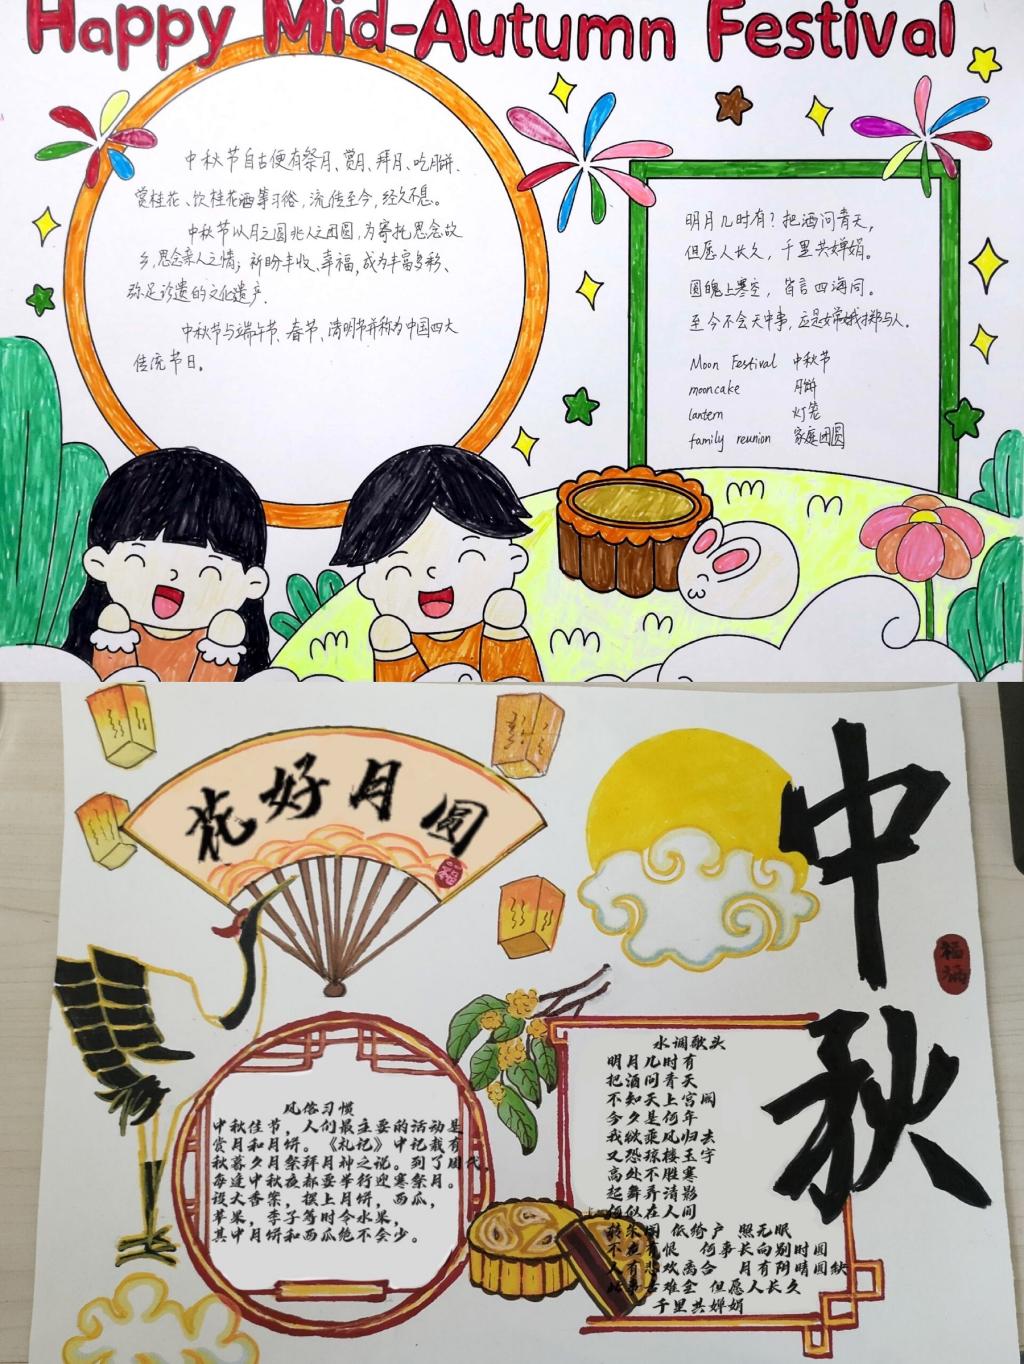 Happy Mid-Autumn Festival
中秋节自古便有祭月、赏月、拜月、吃月饼、
赏桂花、饮桂花酒等习俗，流传至今，经久不息。
中秋节以月之圆兆人之团圆，为寄托思念故
乡，思念亲人之情；祈盼丰收、幸福，成为丰富多彩、
弥足珍贵的文化遗产.
中秋节与端午节、春节、清明节并称为中国四大
传统节日。
明月几时有？把酒问青天，
但愿人长久，千里共婵娟。
圆魄上寒空，皆言四海同。
至今不会天中事，应是嫦娥掷与人。
Moon Festival 中秋节
mooncake 月饼
lantern 灯笼
family reunion 家庭团圆
花好月圆
中秋
风俗习惯
中秋佳节，人们最主要的活动是
赏月和月饼。《礼记》中记载有
秋暮夕月祭拜月神之说。到了周代，
每逢中秋夜都要举行迎寒祭月。
设大香案，摆上月饼，西瓜，
苹果，李子等时令水果，
其中月饼和西瓜绝不会少。
水调歌头
明月几时有
把酒问青天
不知天上宫阙
今夕是何年
我欲乘风归去
又恐琼楼玉宇
高处不胜寒
起舞弄清影
何似在人间
转朱阁 低绮户 照无眠
不应有恨 何事长向别时圆
人有悲欢离合 月有阴晴圆缺
此事古难全 但愿人长久
千里共婵娟